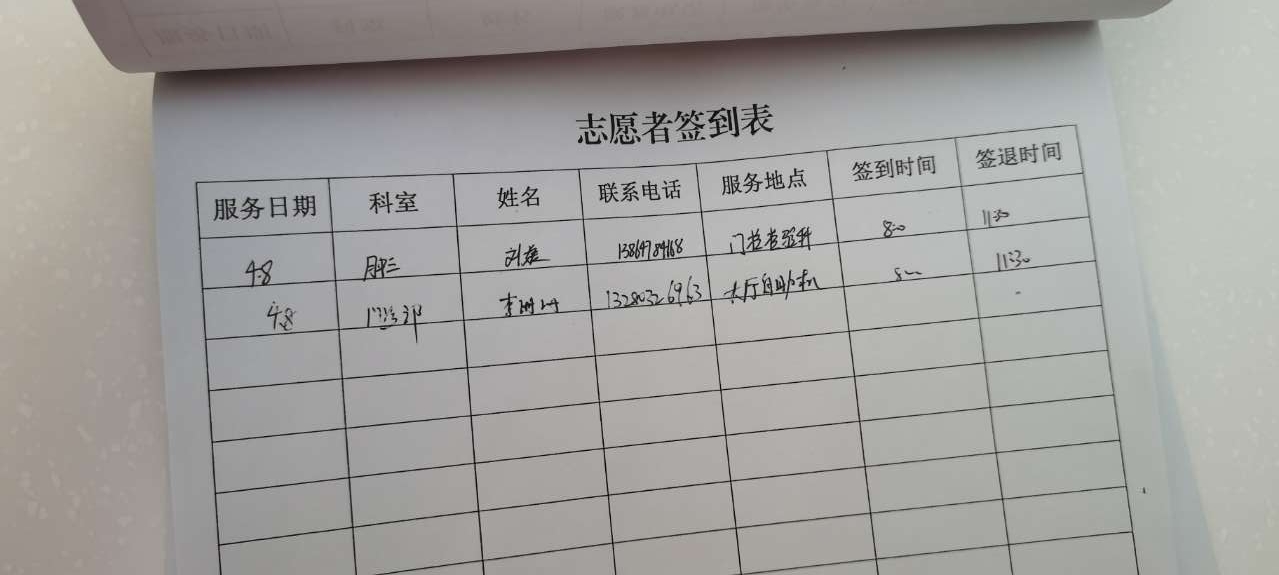 志愿者签到表
服务日期 科室 姓名 联系电话 服务地点 签到时间 签退时间
4.8 刘 门诊检验科 8:00 11:30
4.8 门诊部 李 13280326963 大厅自助机 8:00 11:30